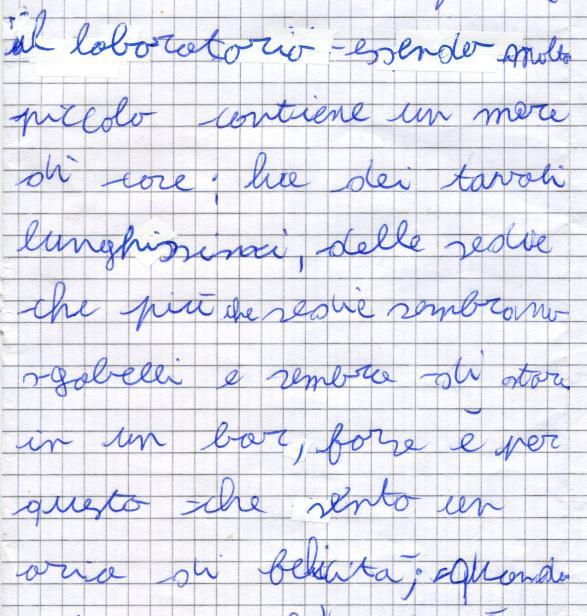 il laboratorio essendo molto
piccolo contiene un mare
di cose; ha dei tavoli
lunghissimi, delle sedie
che più che sedie sembrano
sgabelli e sembra di stare
in un bar, forse è per
questo che sento un
aria di felicità; Quando